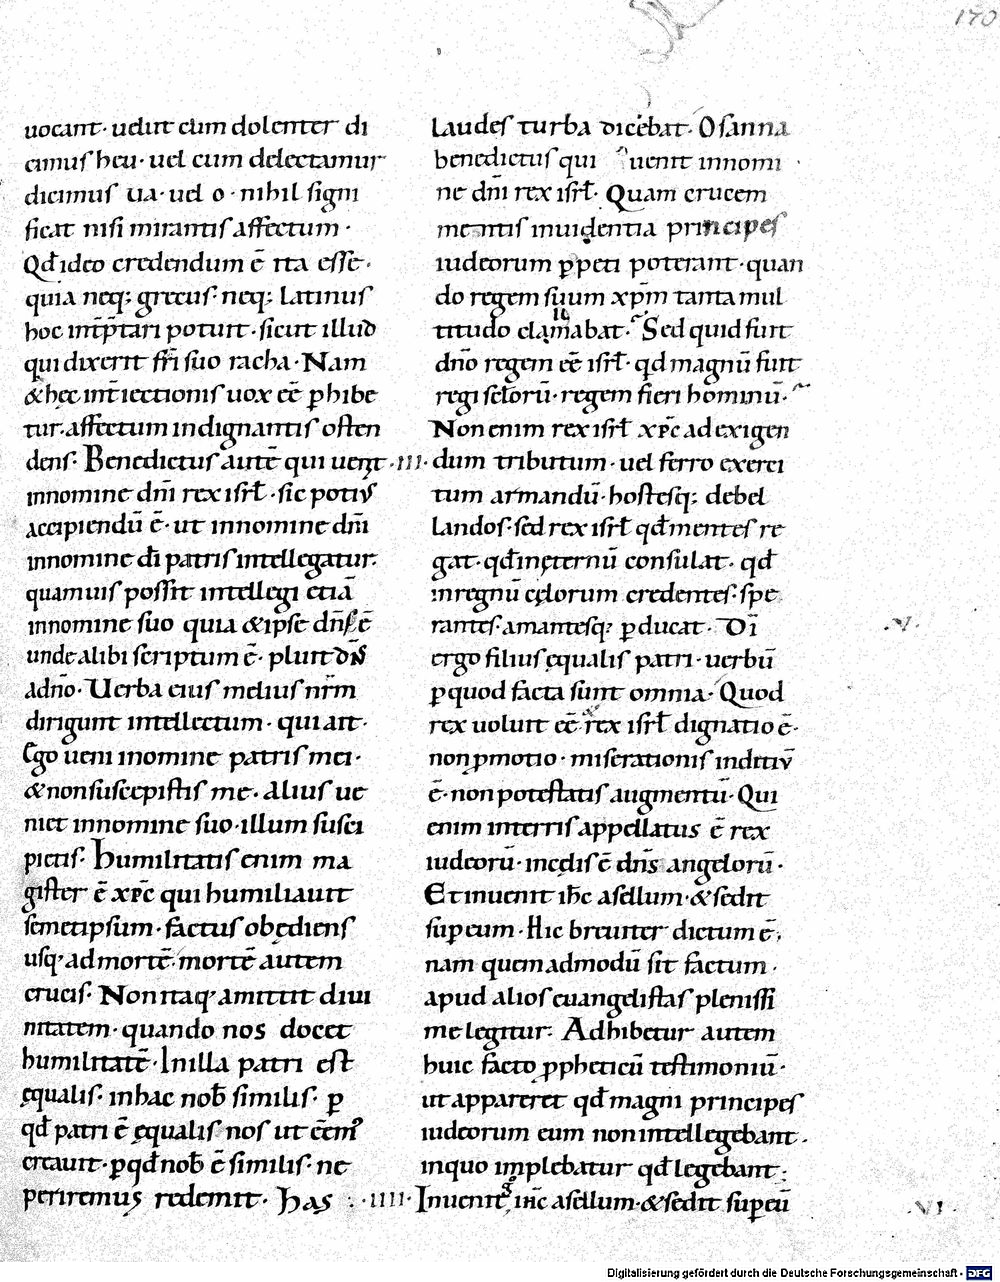 170
uocant· uelut cum dolenter di
cimus heu· uel cum delectamur
dicimus ua· uel o· nihil signi
ficat nisi mirantis affectum·
Qđ ideo credendum ē ita esse·
quia neq; grecus· neq; latinus
hoc int̄p̄tari potuit· sicut illud
qui dixerit fr̄i suo racha· Nam
& hęc int̄iectionis uox eē ꝑhibe
tur· affectum indignantis osten
dens· Benedictus autē qui uenit ·III·
innomine dn̄i rex isrł· sic potiꝰ
accipiendū ē· ut innomine dn̄i
innomine dī patris intellegatur·
quamuis possit intellegi etiā
innomine suo quia & ipse dn̄s ē
unde alibi scriptum ē· pluit dn̄s
adn̄o· Uerba eius melius nr̄m
dirigunt intellectum· qui ait·
Ego ueni inomine patris mei·
& non suscepistis me· Alius ue
niet innomine suo· illum susci
pietis· humilitatis enim ma
gister ē xp̄c qui humiliauit
semetipsum· factus obediens
usq· ad mortē· mortē autem
crucis· Non itaq· amittit diui
nitatem· quando nos docet
humilitatē· In illa patri est
ęqualis· inhac nob̄ similis· ꝑ
qđ patri ē ęqualis nos ut eēmꝰ
creauit· ꝑqđ nob̄ ē similis· ne
periremus redemit· has ·IIII·
laudes turba dicebat· Osanna
benedictus qui uenit innomi
ne dn̄i rex isrł· Quam crucem
mentis inuidentia principes
iudeorum ꝑpeti poterant· quan
do regem suum xp̄m tanta mul
titudo clamabat· Sed quid fuit
dn̄o regem eē isrł· qđ magnū fuit
regi sc̄lorū· regem fieri hominū·
Non enim rex isrł xp̄c ad exigen
dum tributum· uel ferro exerci
tum armandū· hostesq; debel
landos· sed rex isrł qđ mentes re
gat· qđ ineternū consulat· qđ
inregnū cęlorum credentes· spe
rantes· amantesq; ꝑducat· Dī ·V·
ergo filius ęqualis patri· uerbū
ꝑquod facta sunt omnia· Quod
rex uoluit eē rex isrł dignatio ē·
non ꝓmotio· miserationis inditiū
ē· non potestatis augmentū· Qui
enim interris appellatus ē rex
iudeorū· incęlis ē dn̄s angelorū·
Et inuenit ih̄c asellum· & sedit
suꝑ eum· Hic breuiter dictum ē·
nam quemadmodū sit factum·
apud alios euangelistas plenissi
me legitur· Adhibetur autem
huic facto ꝓpheticū testimoniū·
ut appareret qđ magni principes
iudeorum eum non intellegebant·
inquo implebatur qđ legebant·
Inuenit ih̄c asellum· & sedit suꝑ eū ·VI·
Digitalisierung gefördert durch die Deutsche Forschungsgemeinschaft - DFG